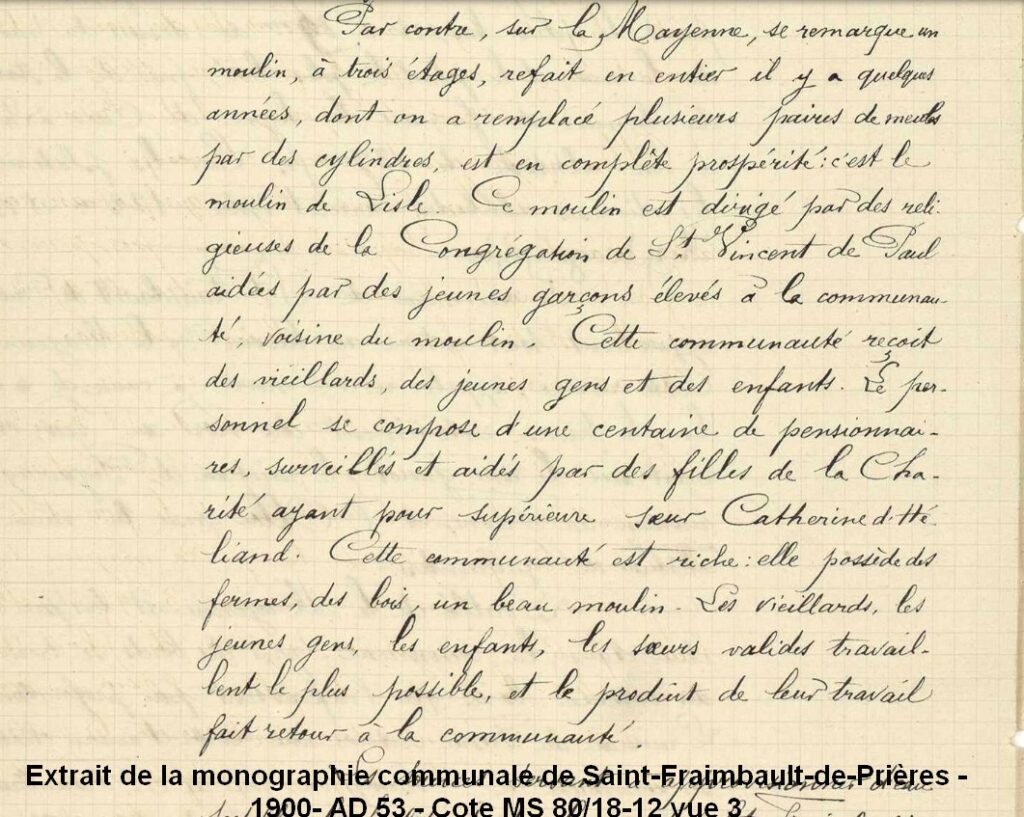 Par contre, sur la Mayenne, se remarque un
moulin, à trois étages, refait en entier il y a quelques
années, dont on a remplacé plusieurs paires de meules
par des cylindres, est en complète prospérité : c'est le
moulin de Lisle. Ce moulin est dirigé par des reli-
gieuses de la Congrégation de St Vincent de Paul
aidées par des jeunes garçons élevés à la communau-
té, voisine du moulin. Cette communauté reçoit
des vieillards, des jeunes gens et des enfants. Le per-
sonnel se compose d'une centaine de pensionnai-
res, surveillés et aidés par des filles de la Cha-
rité ayant pour supérieure sœur Catherine d'Hé-
liand. Cette communauté est riche : elle possède des
fermes, des bois, un beau moulin. Les vieillards, les
jeunes gens, les enfants, les sœurs valides travail-
lent le plus possible, et le produit de leur travail
fait retour à la communauté.
Extrait de la monographie communale de Saint-Fraimbault-de-Prières -
1900- AD 53 - Cote MS 80/18-12 vue 3